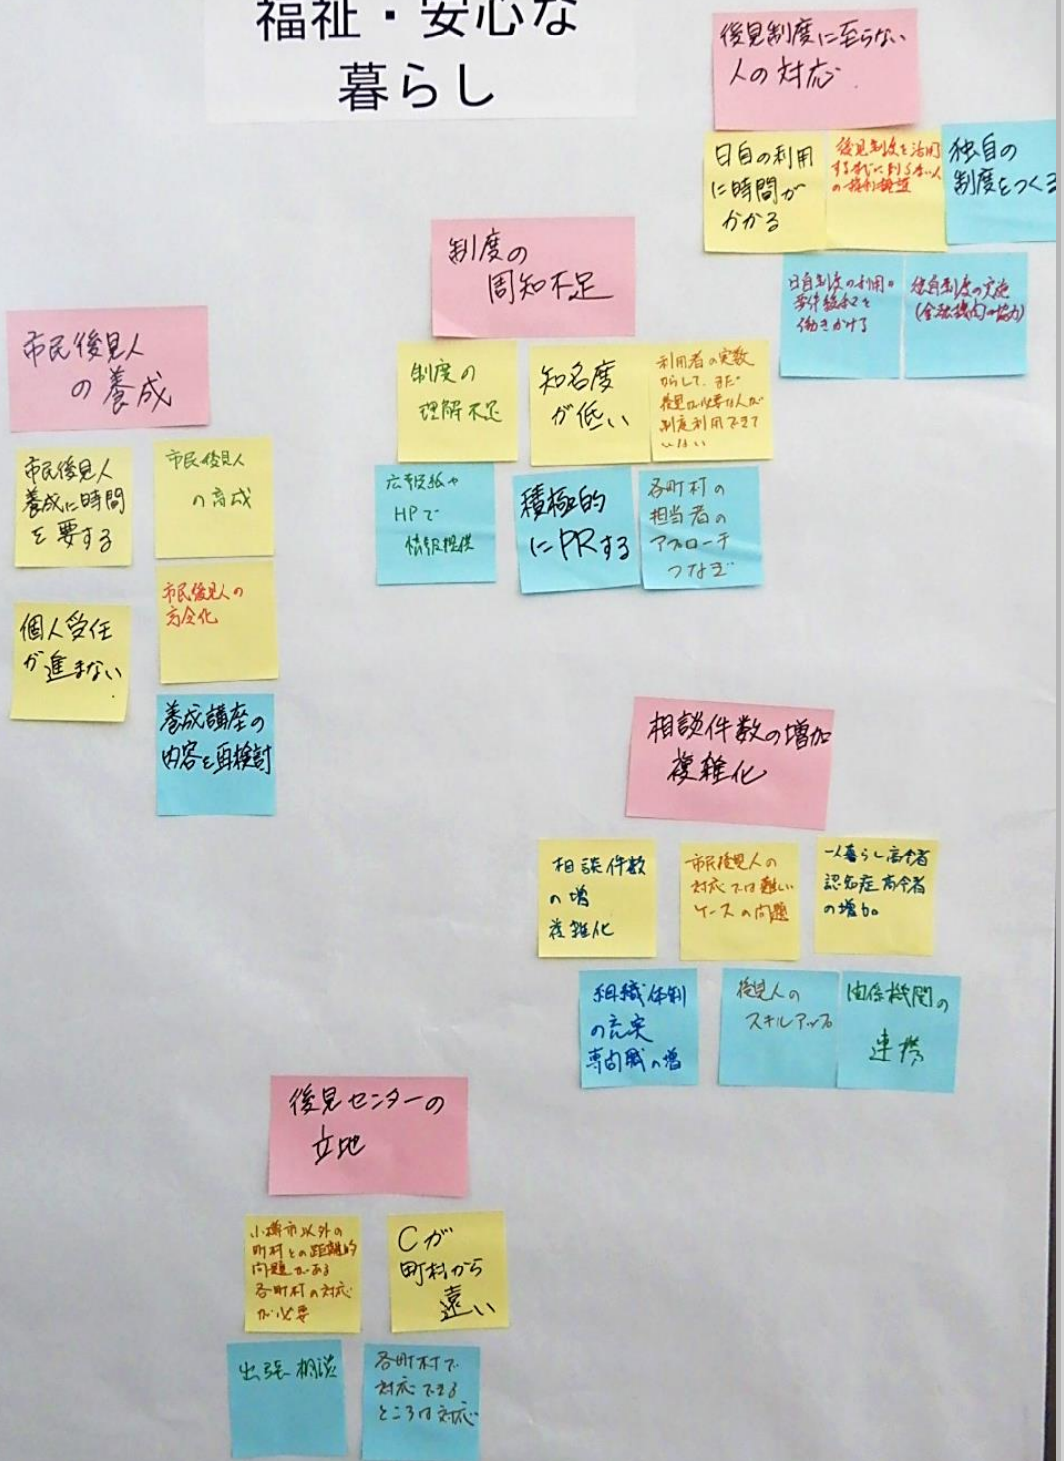 福祉・安心な
暮らし
後見制度に至らない
人の対応
日自の利用
に時間が
かかる
後見制度を活用
するまでに到らない人
の権利擁護
独自の
制度をつくる
日自制度の利用の
要件緩和を
働きかける
独自制度の実施
(金融機関の協力)
制度の
周知不足
制度の
理解不足
知名度
が低い
利用者の実数
からして、まだ
後見が必要な人が
制度利用できて
いない
広報紙や
HPで
情報提供
積極的
にPRする
各町村の
担当者の
アプローチ
つなぎ
市民後見人
の養成
市民後見人
養成に時間
を要する
市民後見人
の育成
個人受任
が進まない
市民後見人の
高令化
養成講座の
内容を再検討
相談件数の増加
複雑化
相談件数
の増
複雑化
市民後見人の
対応では難しい
ケースの問題
一人暮らし高令者
認知症高令者
の増加
組織体制
の充実
専門職の増
後見人の
スキルアップ
関係機関の
連携
後見センターの
立地
小樽市以外の
町村との距離的
問題がある
各町村の対応
が必要
Cが
町村から
遠い
出張相談
各町村で
対応できる
ところは対応